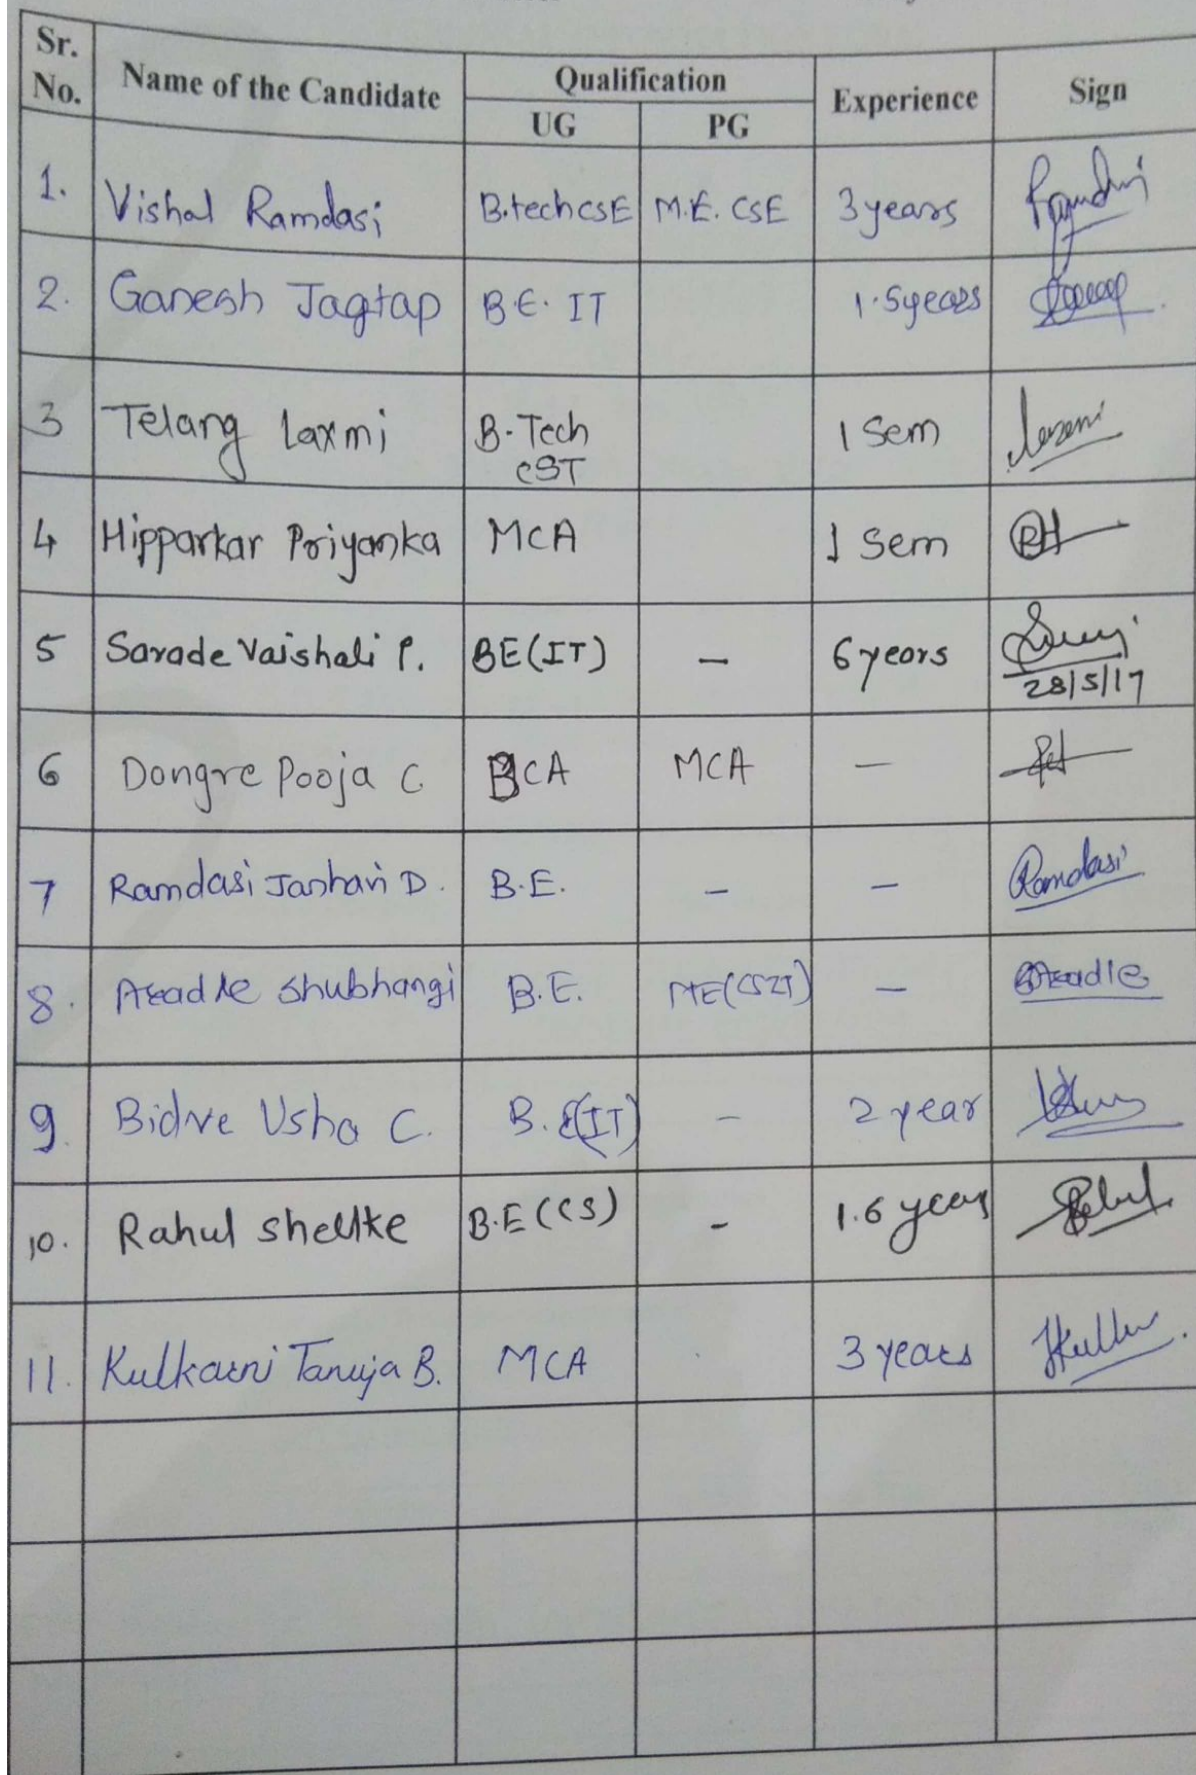 Sr. No. Name of the Candidate Qualification Experience Sign
UG PG
1. Vishal Ramdasi B.tech CSE M.E. CSE 3 years
2. Ganesh Jagtap B.E. IT 1.5 years
3 Telang Laxmi B.Tech CST 1 Sem
4 Hipparkar Priyanka MCA 1 Sem
5 Sarade Vaishali P. BE (IT) – 6 years
28/5/17
6 Dongre Pooja C. BCA MCA –
7 Ramdasi Janhavi D. B.E. – – Ramdasi
8. Shubhangi B.E. –
9. Bidve Usha C. B.E (IT) – 2 year
10. Rahul Shelke B.E (CS) - 1.6 years
11. Kulkarni Tanuja B. MCA 3 years